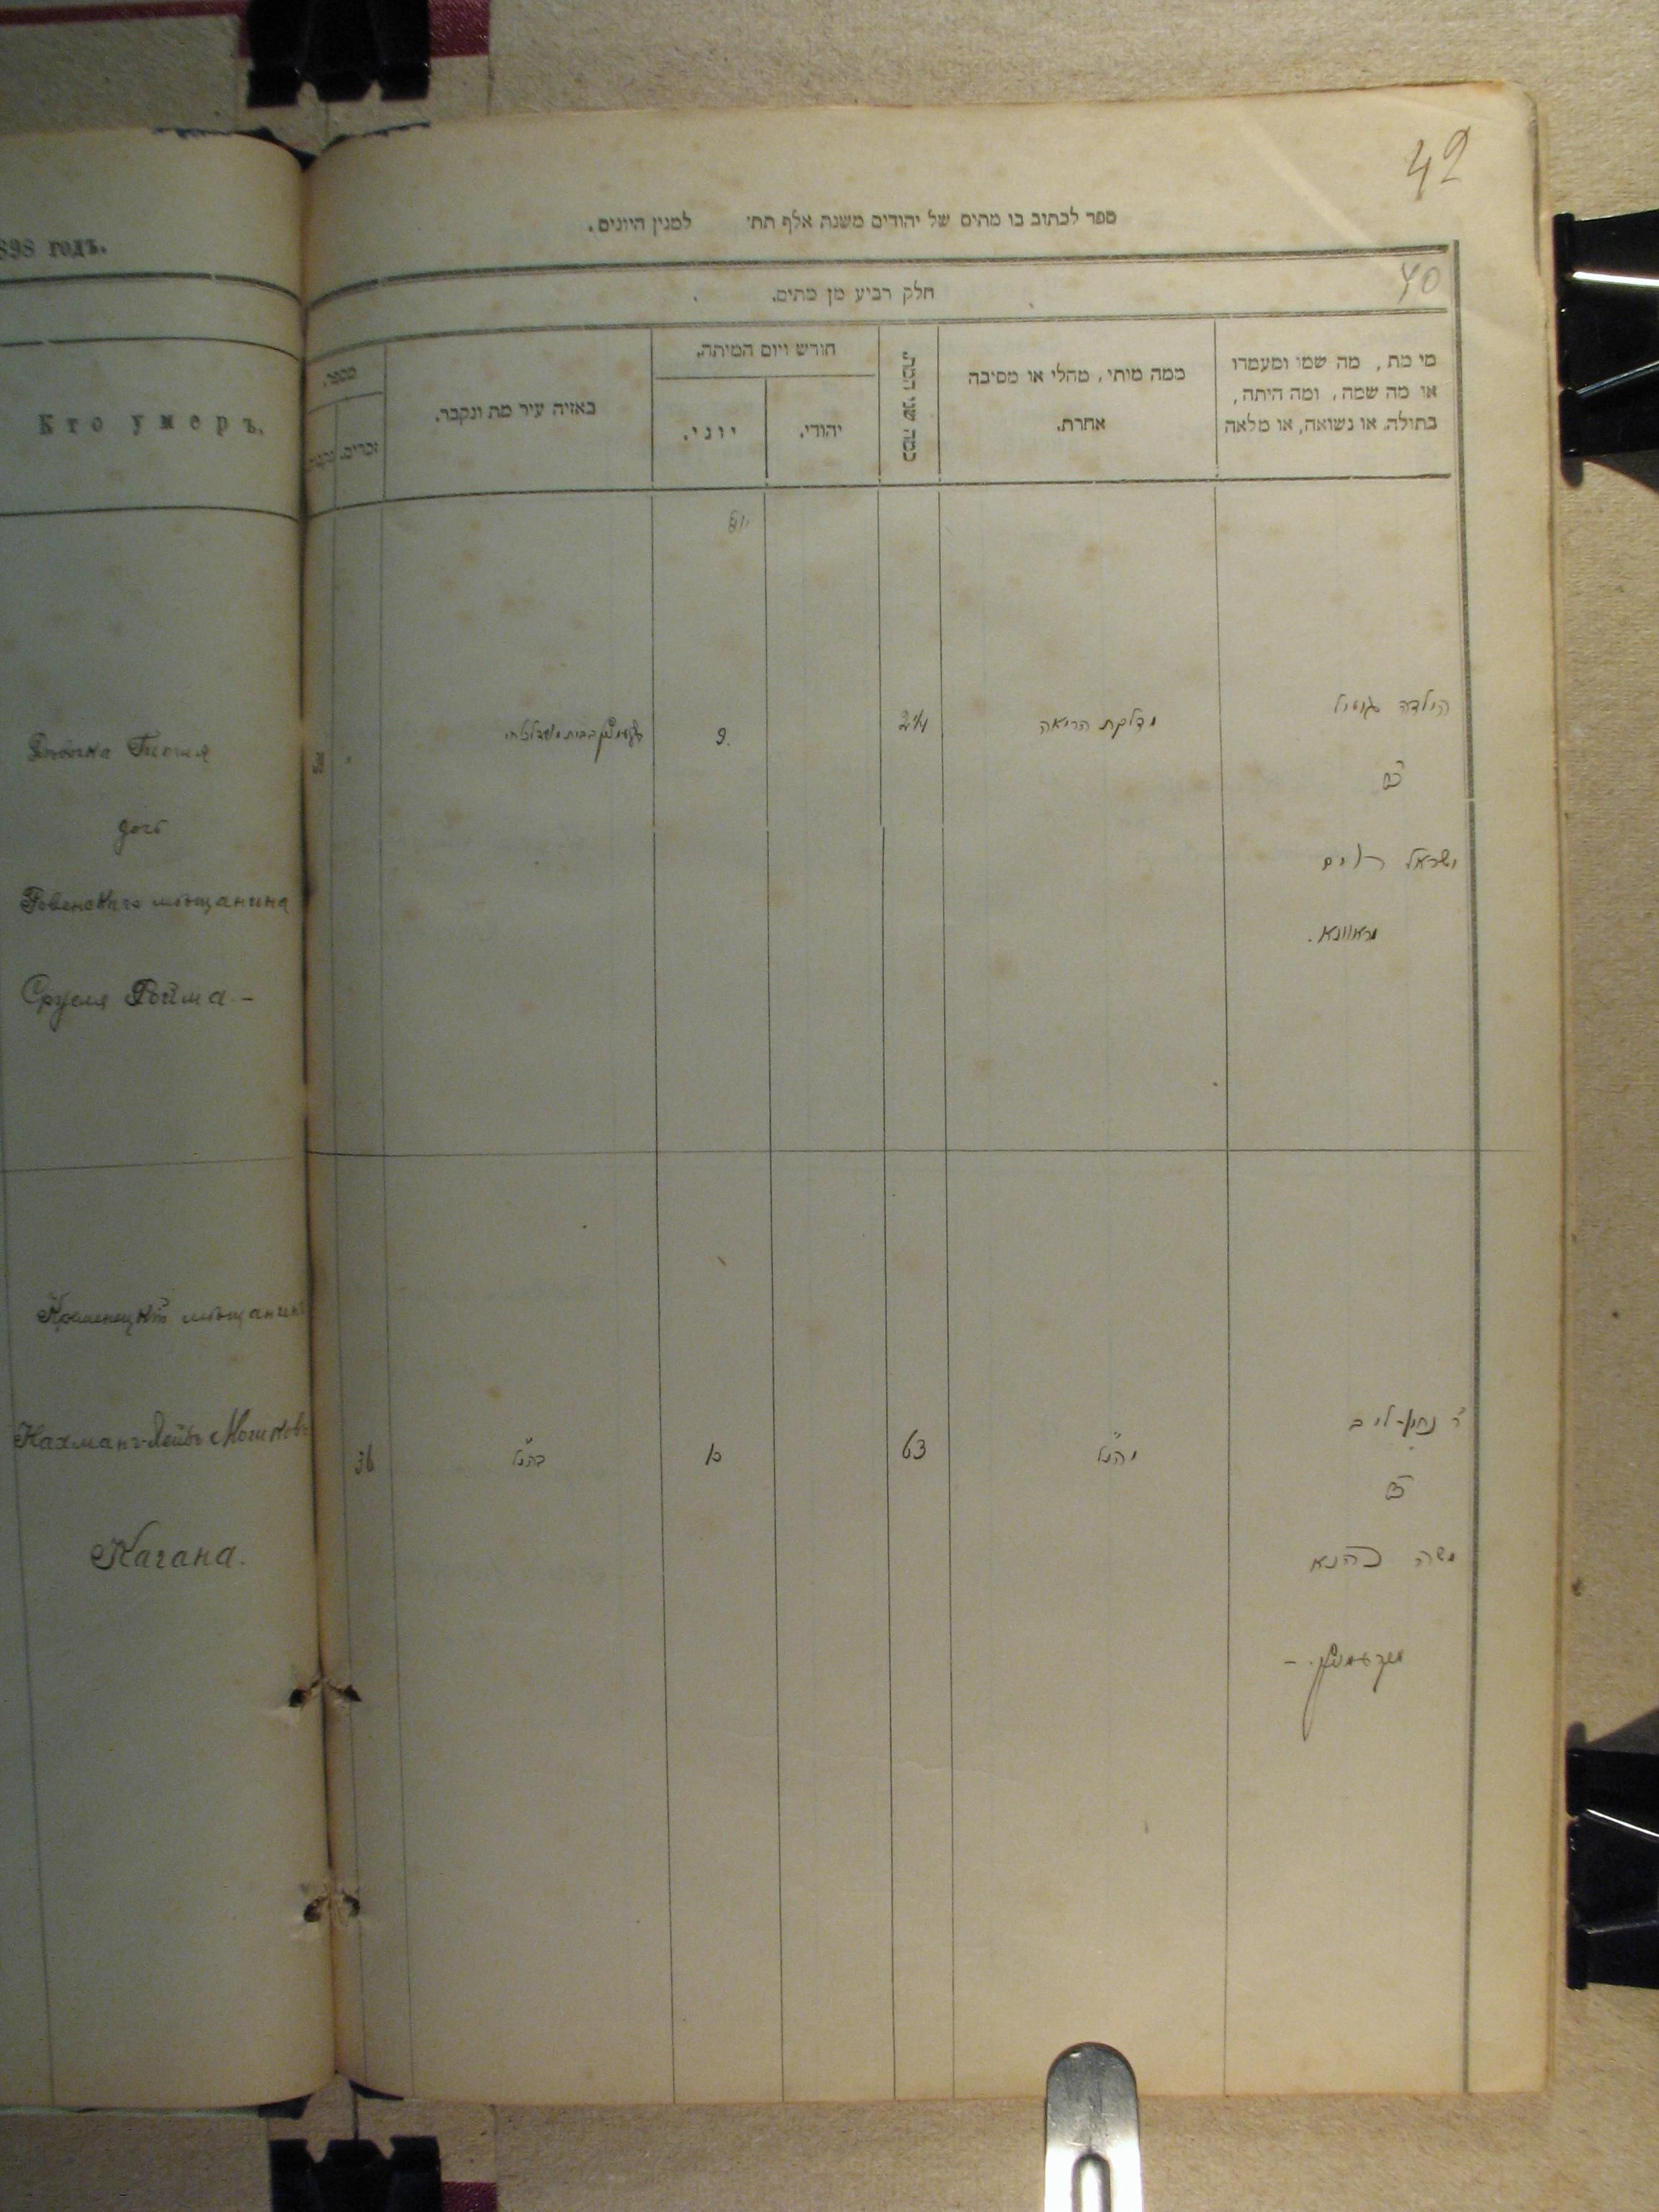 898 годъ.
Кто умеръ.
дочь
Ровенскаго мѣщанина
Сруля Ройма.-
Кременецкій мѣщанинъ
Нахманъ-Лейбъ Мошковъ
Кагана.
42
ספר לכתוב בו מתים של יהודים משנת אלף תת׳ למנין היונים.
40
חלק רביע מן מתים.
מי מת, מה שמו ומעמדו
או מה שמה, ומה היתה,
בתולה. או נשואה, או מלאה
ממה מותי, מחלי או מסיבה
אחרת.
כמה שני המת.
חודש ויום המיתה.
יהודי.
יוני.
באזיה עיר מת ונקבר.
מספר.
זכרים.
יולי
הילדה
בת
ישראל רוים
מראוונא.
מדלקת הריאה
2¼
9.
ר׳ נחמן-ליב
ב״ר
משה כהנא
מקרעמניץ. -
כנ״ל
63
10
כנ״ל
36